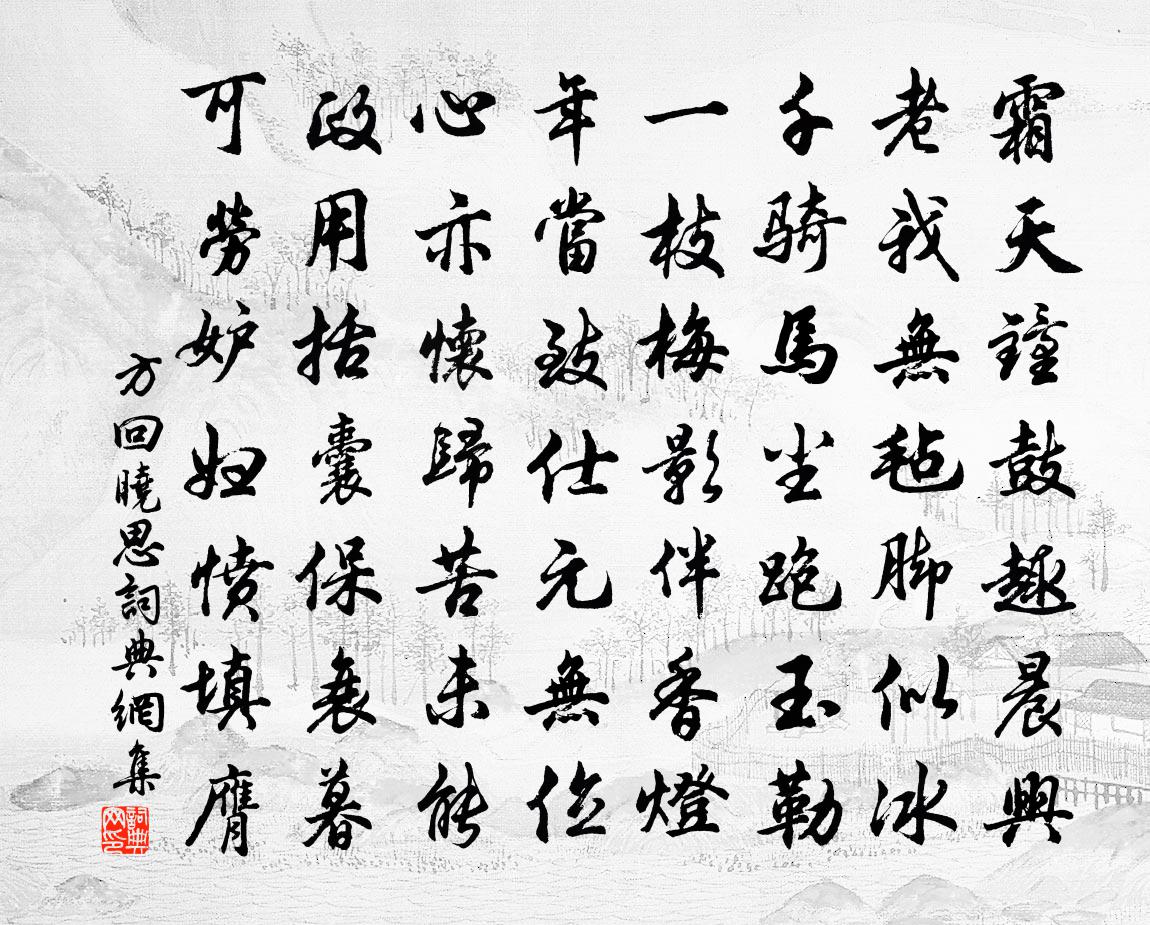 霜天鐘鼓趣晨興
老我無毡脚似冰
千騎馬尘跑玉勒
一枝梅影伴香燈
年當致仕元無位
心亦懷歸苦未能
政用括囊保衰暮
可勞妒婦憤填膺
方回曉思詞典網集
詞典
网印